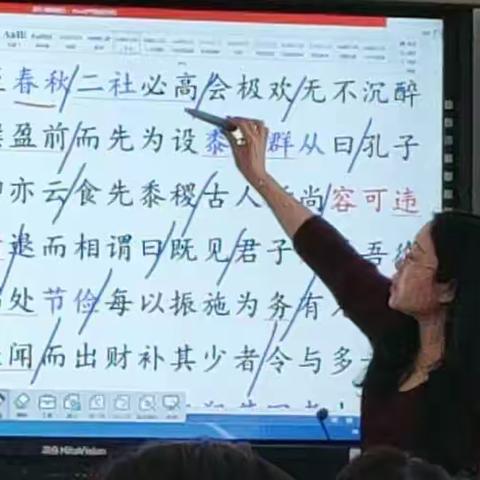 春秋二社必高会极欢无不沉醉
盈前而先为设黍 群从曰孔子
亦云食先黍稷古人 尚容可违
退而相谓曰既见君子 吾
处节俭每以振施为务有
闻而出财补其少者令与多